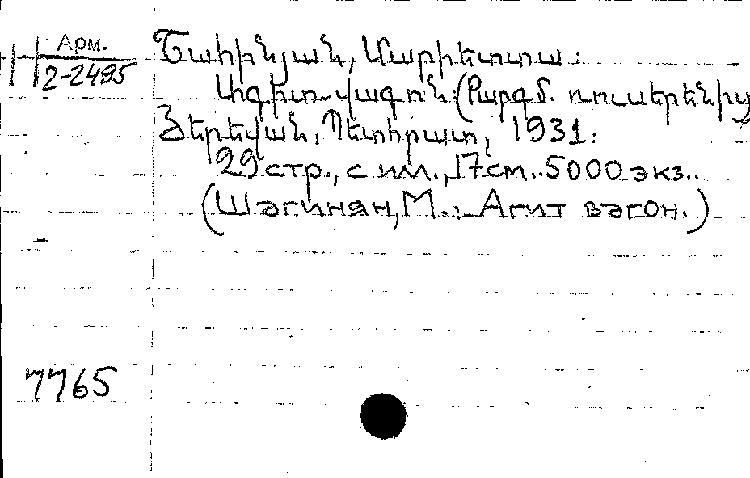 Арм.
2-2495
Շահինյան, Մարիետտա.
Ագիտ-վագոն (Թարգմ. ռուսերենից
Յերեվան, Պետհրատ, 1931.
29 стр., с ил., 17 см. 5000 экз..
(Шагинян, М.: Агит вагон.)
7765